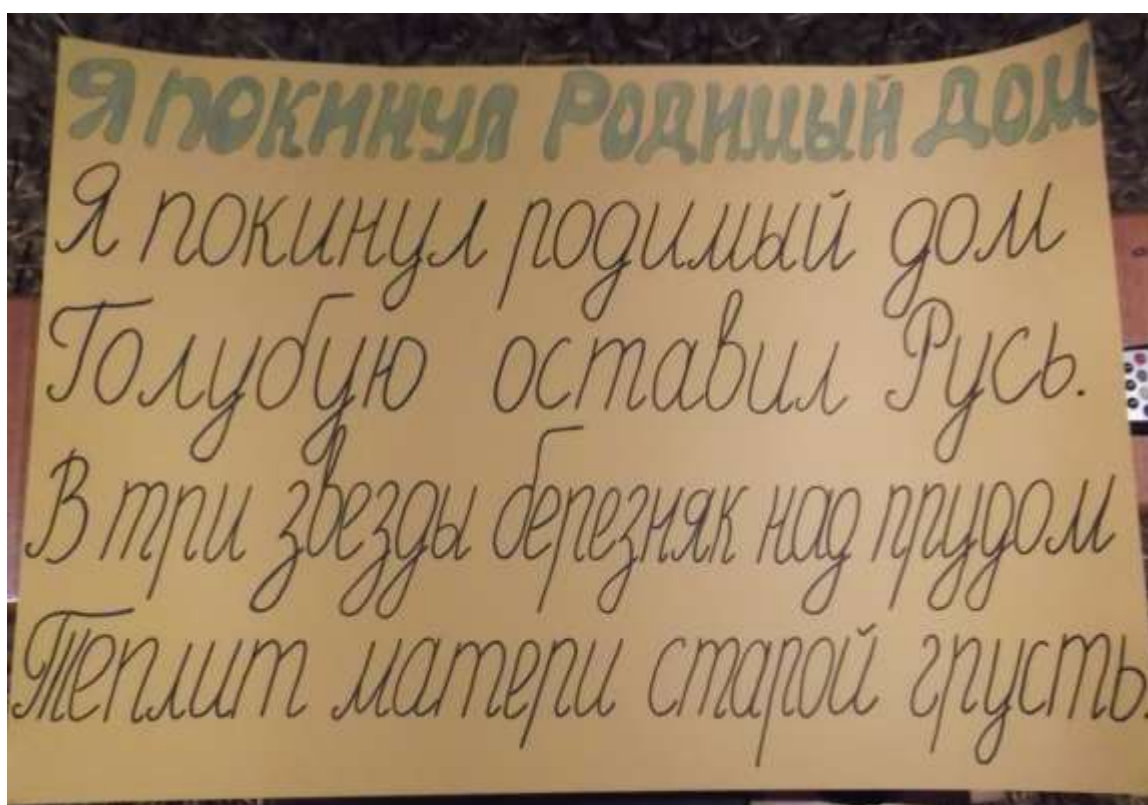 Я покинул Родимый Дом
Я покинул родимый дом
Голубую оставил Русь.
В три звезды березняк над прудом
Теплит матери старой грусть.